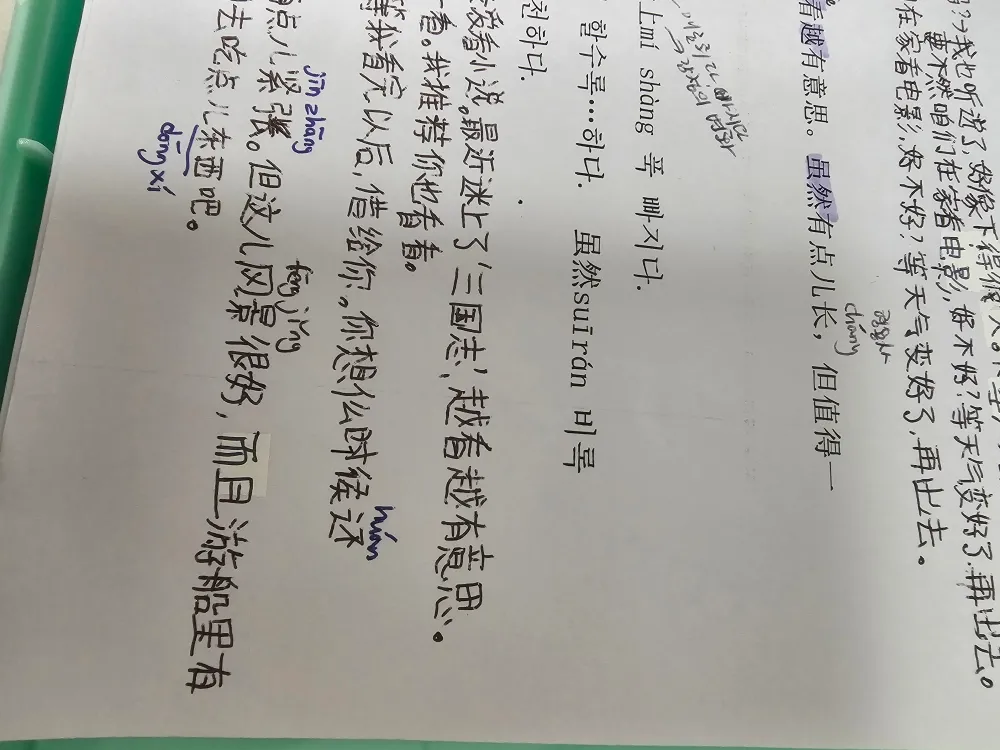 我也听说了，好像下得很
要不然咱们在家看电影，好不好？等天气变好了，再出去。
在家看电影，好不好？等天气变好了，再出去。
cháng
看越有意思。虽然有点儿长，但值得一
上mí shàng 푹 빠지다.
할수록…하다. 虽然suīrán 비록
천하다.
爱看小说。最近迷上了‘三国志’，越看越有意思。
看。我推荐你也看看。
huán
等我看完以后，借给你。你想什么时候还
jǐn zhāng fēng jǐng
点儿紧张。但这儿风景很好，而且游船里有
去吃点儿东西吧。
dōng xí